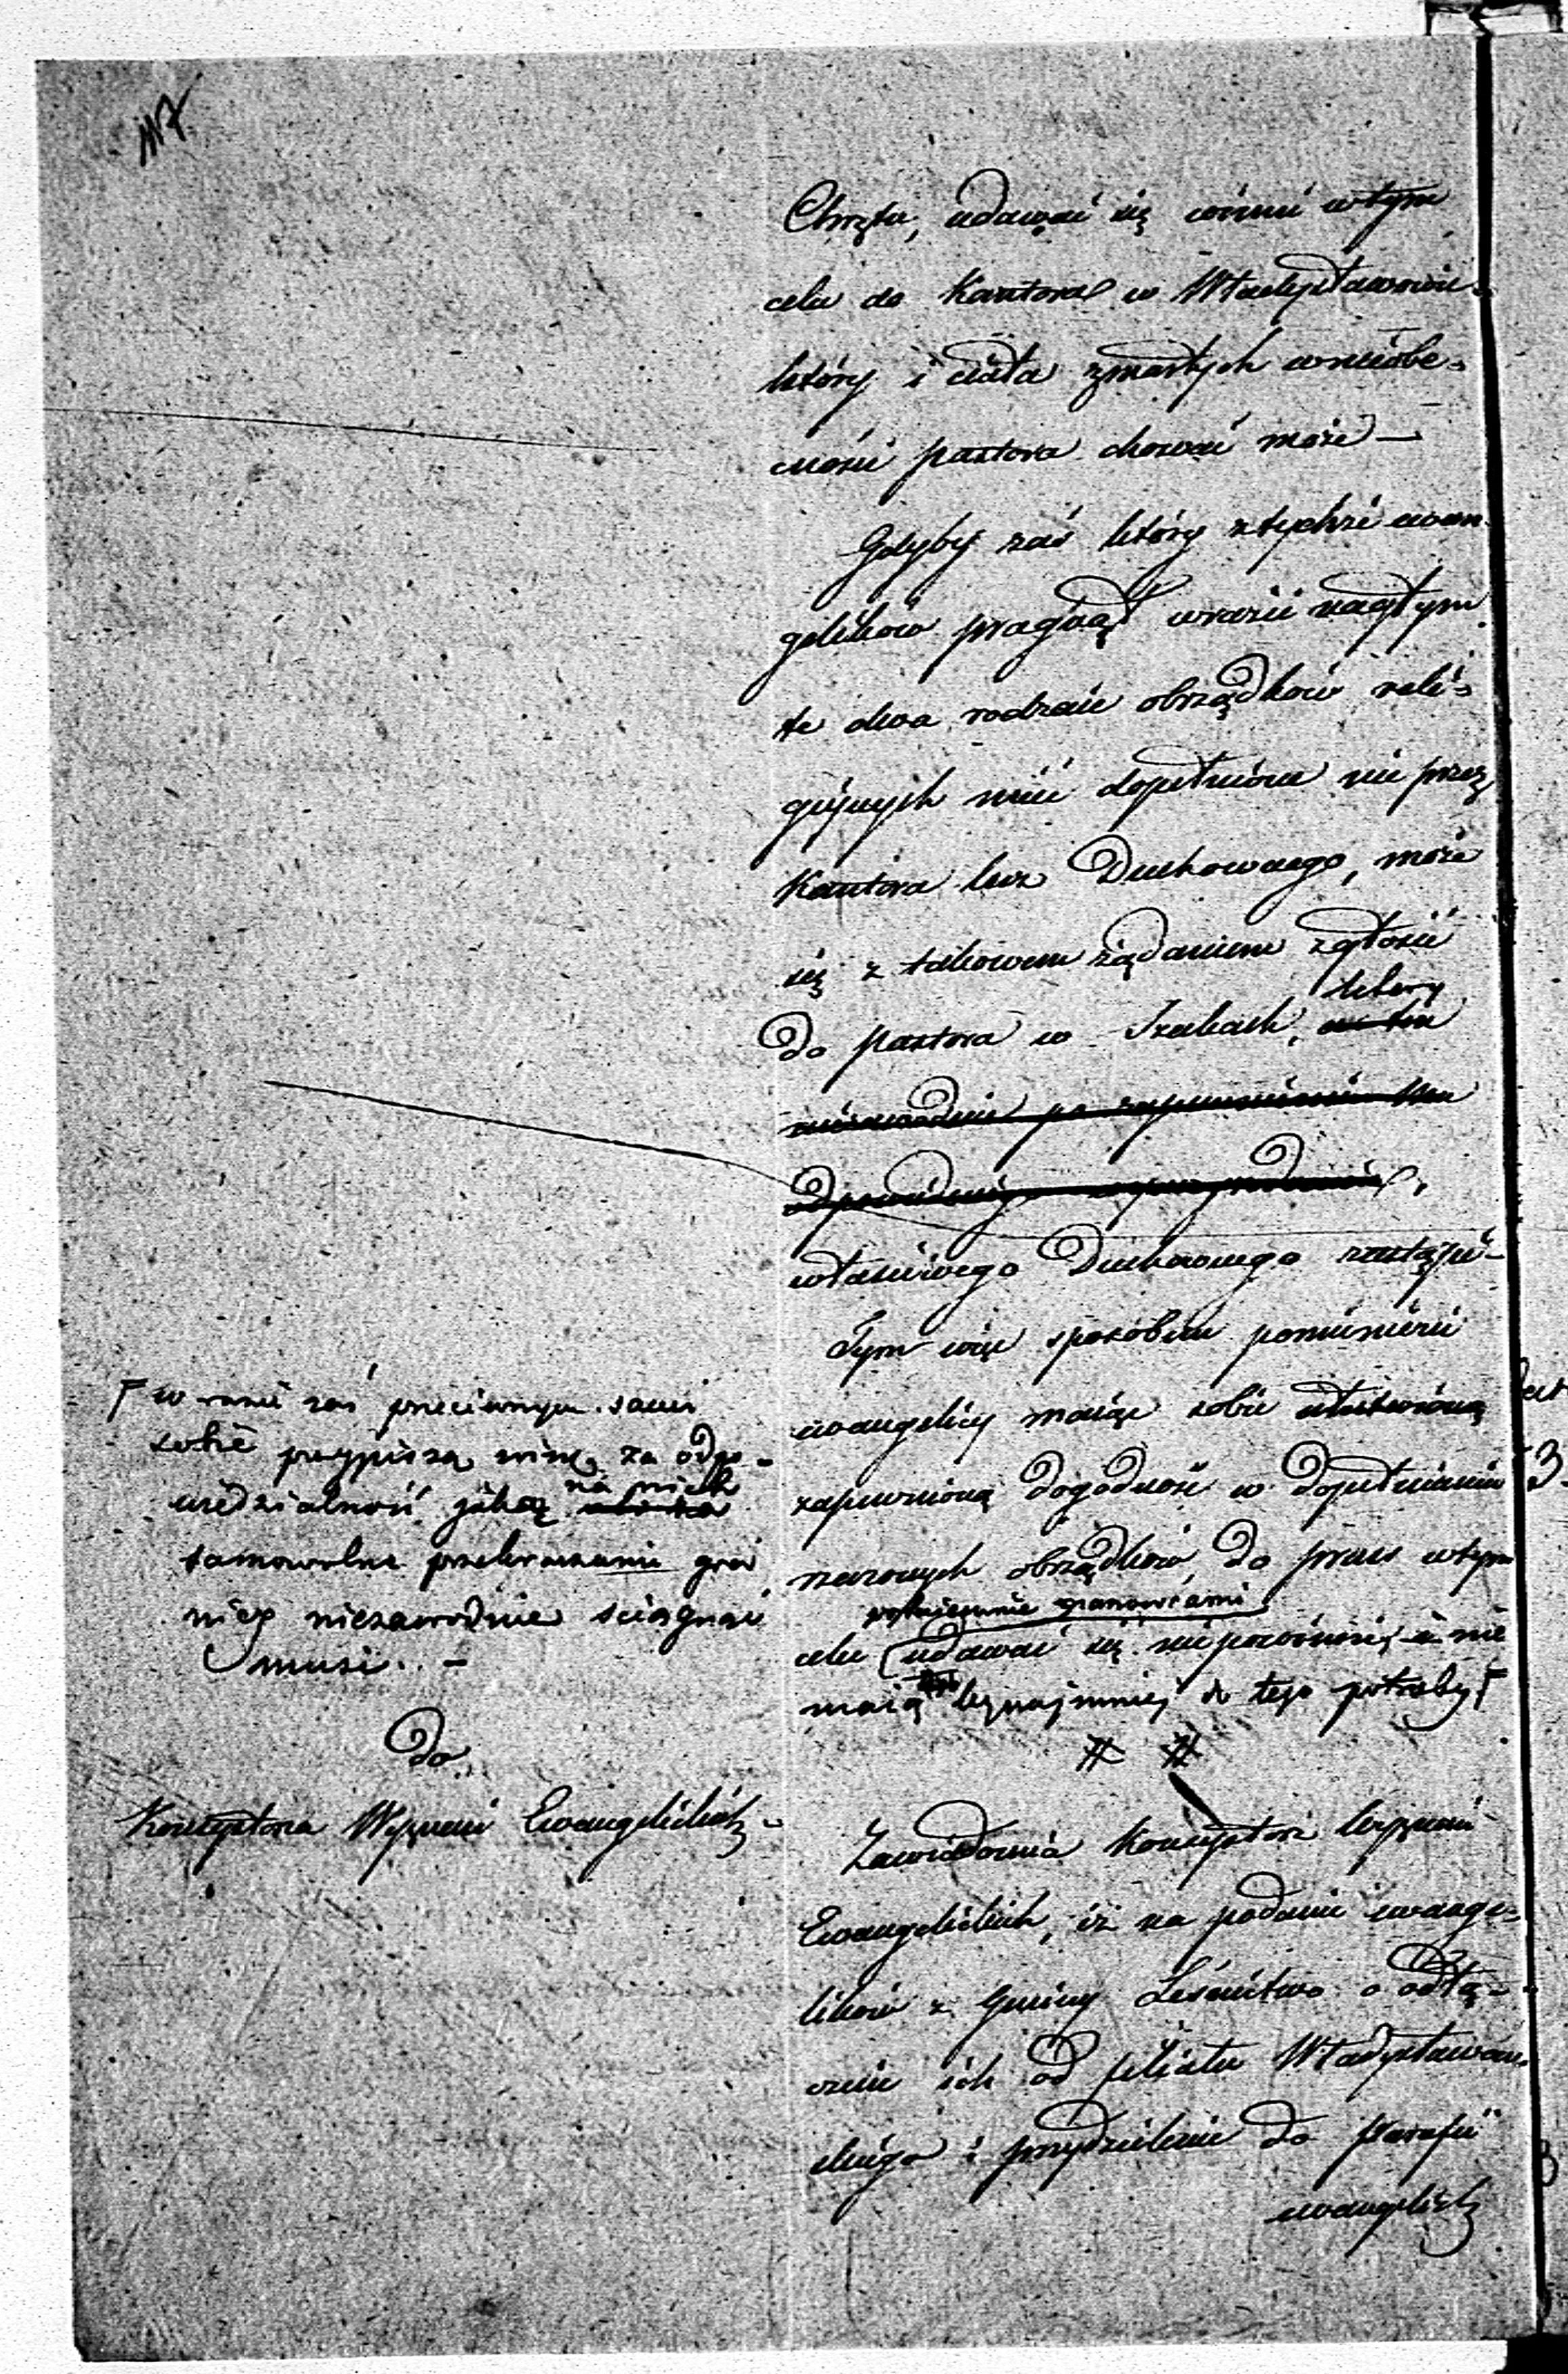 117
Chrztu, udawać się winni w tym
celu do Kantora w Władysławowie
który i ciała zmarłych w nieobe-
cności pastora chować może —
Gdyby zaś który z tychże ewan
gelików pragnął w razie nagłym
te dwa rodzaie obrządków reli-
gijnych mieć dopełnione nie przez
Kantora lecz Duchownego, może
się z takowem żądaniem zgłosić
który
do pastora w Izabach,
właściwego Duchownego zastąpi —
Tym więc sposobem pomienieni
ewangelicy maiąc sobie
zapewnioną dogodność w dopełnianiu
rzeczonych obrządków, do prus w tym
celu udawać się nie powinni, i nie
maią bynajmniej do tego potrzeby Γ
Γ w razie zaś przeciwnym sami
sobie przypiszą winę, za odpo-
na nich
wiedzialność jaką
samowolne przekraczanie gra
nicy niezawodnie sciągnąć
musi. —
Do
Konsystorza Wyznań Ewangelickich
Zawiadomia Konsystorz Wyznań
Ewangelickich, iż na podanie ewange-
lików z Gminy Leśnictwo o odłą-
czenie ich od filiału Władysławow-
skiego i przydzielenie do Parafii
ewangelick